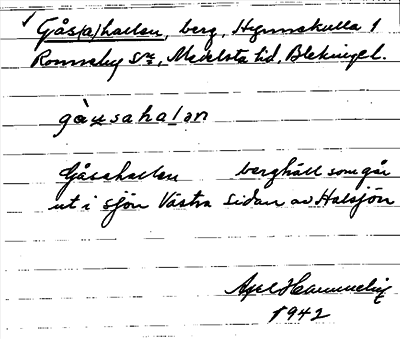 ✓ Gås(a)hallen, berg, Hemmeskulla 1
Ronneby sn, Medelsta hd, Blekinge l.
gàusahalan
Gåsahallen berghäll som går
ut i sjön Västra sidan av Halsjön
Axel
1942